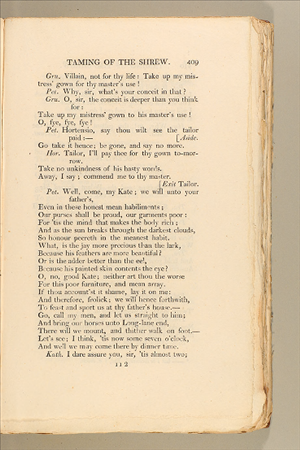 TAMING OF THE SHREW. 409
Gru. Villain, not for thy life: Take up my mis-
tress' gown for thy master's use!
Pet. Why, sir, what's your conceit in that?
Gru. O, sir, the conceit is deeper than you think
for:
Take up my mistress' gown to his master's use!
O, fye, fye, fye!
Pet. Hortensio, say thou wilt see the tailor
paid:— [Aside.
Go take it hence; be gone, and say no more.
Hor. Tailor, I'll pay thee for thy gown to-mor-
row.
Take no unkindness of his hasty words:
Away, I say; commend me to thy master.
[Exit Tailor.
Pet. Well, come, my Kate; we will unto your
father's,
Even in these honest mean habiliments;
Our purses shall be proud, our garments poor:
For 'tis the mind that makes the body rich;
And as the sun breaks through the darkest clouds,
So honour peereth in the meanest habit.
What, is the jay more precious than the lark,
Because his feathers are more beautiful?
Or is the adder better than the eel,
Because his painted skin contents the eye?
O, no, good Kate; neither art thou the worse
For this poor furniture, and mean array.
If thou account'st it shame, lay it on me:
And therefore, frolick; we will hence forthwith,
To feast and sport us at thy father's house.—
Go, call my men, and let us straight to him;
And bring our horses unto Long-lane end,
There will we mount, and thither walk on foot.—
Let's see; I think, 'tis now some seven o'clock,
And well we may come there by dinner time.
Kath. I dare assure you, sir, 'tis almost two;